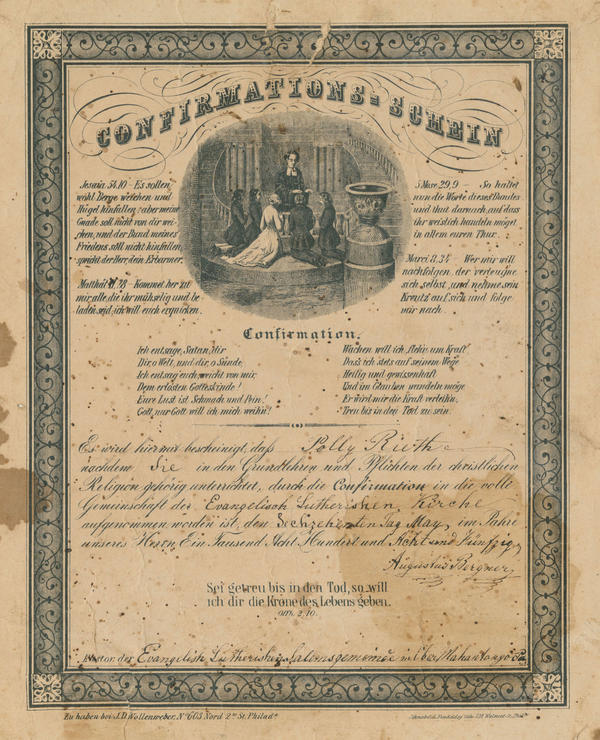 CONFIRMATIONS=SCHEIN
Jesaia 54.10 – Es sollen
wohl Berge weichen und
Hügel hinfallen; aber meine
Gnade soll nicht von dir wei-
chen, und der Bund meines
Friedens soll nicht hinfallen,
spricht der Herr, dein Erbarmer.
Matthäi 11.28 – Kommet her zu
mir, alle, die ihr mühselig und be-
laden seid, ich will euch erquicken.
5 Mose 29,9 – So haltet
nun die Worte dieses Bundes
und thut darnach, auf dass
ihr weislich handeln möget
in allem eurem Thun.
Marci 8.34 Wer mir will
nachfolgen, der verleugne
sich selbst, und nehme sein
Kreutz auf sich und folge
mir nach.
Confirmation.
Ich entsage, Satan, dir
Dir, o Welt, und dir, o Sünde,
Ich entsag' euch, weicht von mir,
Dem erlösten Gotteskinde!
Eure Lust ist Schmach und Pein!
Gott, nur Gott will ich mich weih'n!
Wachen will ich, fleh'n um Kraft
Dass ich stets auf seinem Wege
Heilig und gewissenhaft
Und im Glauben wandeln möge
Er wird mir die Kraft verleih'n,
Treu bis in den Tod zu sein.
Es wird hiermit bescheinigt, daß Polly Rüth
nachdem Sie in den Grundlehren und Pflichten der christlichen
Religion gehörig unterrichtet, durch die Confirmation in die volle
Gemeinschaft der Evangelisch Lutherishen Kirche
aufgenommen worden ist, den Sechzehenten Tag May, im Jahre
unseres Herrn, Ein Tausend Acht Hundert und Acht und Fünfzig,
Augustus Bergner
Sei getreu bis in den Tod, so will
ich dir die Krone des Lebens geben.
Offb. 2,10.
Pastor der Evangelish Lutherishen Salemsgemeinde in Ober Mahantango Pa
Zu haben bei J.D. Wollenweber, No. 605 Nord 2te St. Philada.